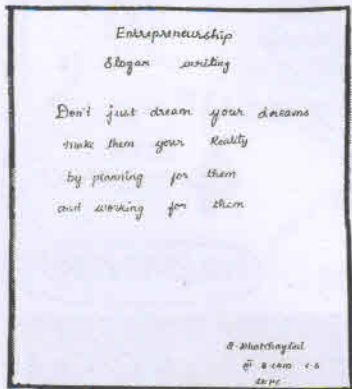 Entrepreneurship
Slogan writing
Don't just dream your dreams
make them your Reality
by planning for them
and working for them